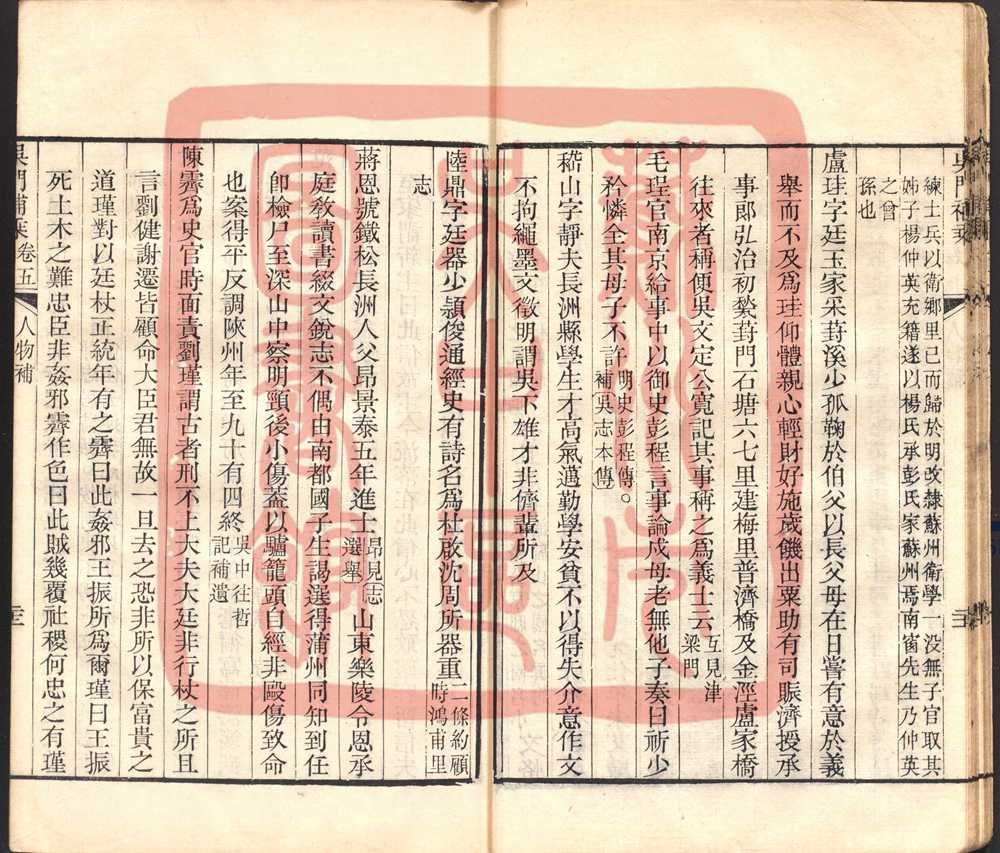 練士兵以衛鄉里已而歸於明改隸蘇州衛學一没無子官取其
姊子楊仲英充籍遂以楊氏承彭氏家蘇州焉南窗先生乃仲英
之曾
孫也
盧珪字廷玉家采葑溪少孤鞠於伯父以長父母在日嘗有意於義
舉而不及爲珪仰體親心輕財好施歲饑出粟助有司賑濟授承
事郎弘治初甃葑門石塘六七里建梅里普濟橋及金涇盧家橋
往來者稱便吳文定公寬記其事稱之爲義士云互見津
梁門
毛珵官南京給事中以御史彭程言事論戍母老無他子奏曰祈少
矜憐全其母子不許明史彭程傳。
補吳志本傳
嵇山字靜夫長洲縣學生才高氣邁勤學安貧不以得失介意作文
不拘繩墨文徵明謂吳下雄才非儕輩所及
陸鼎字廷器少穎俊通經史有詩名爲杜啟沈周所器重二條約顧
時鴻甫里
志
蔣恩號鐵松長洲人父昂景泰五年進士昂見志
選舉山東樂陵令恩承
庭敎讀書綴文銳志不偶由南都國子生謁選得蒲州同知到任
卽檢尸至深山中察明頸後小傷蓋以驢籠頭自經非毆傷致命
也案得平反調陝州年至九十有四終吳中往哲
記補遺
陳霽爲史官時面責劉瑾謂古者刑不上大夫大廷非行杖之所且
言劉健謝遷皆顧命大臣君無故一旦去之恐非所以保富貴之
道瑾對以廷杖正統年有之霽曰此姦邪王振所爲爾瑾曰王振
死土木之難忠臣非姦邪霽作色曰此賊幾覆社稷何忠之有瑾
吳門補乘 卷五 人物補